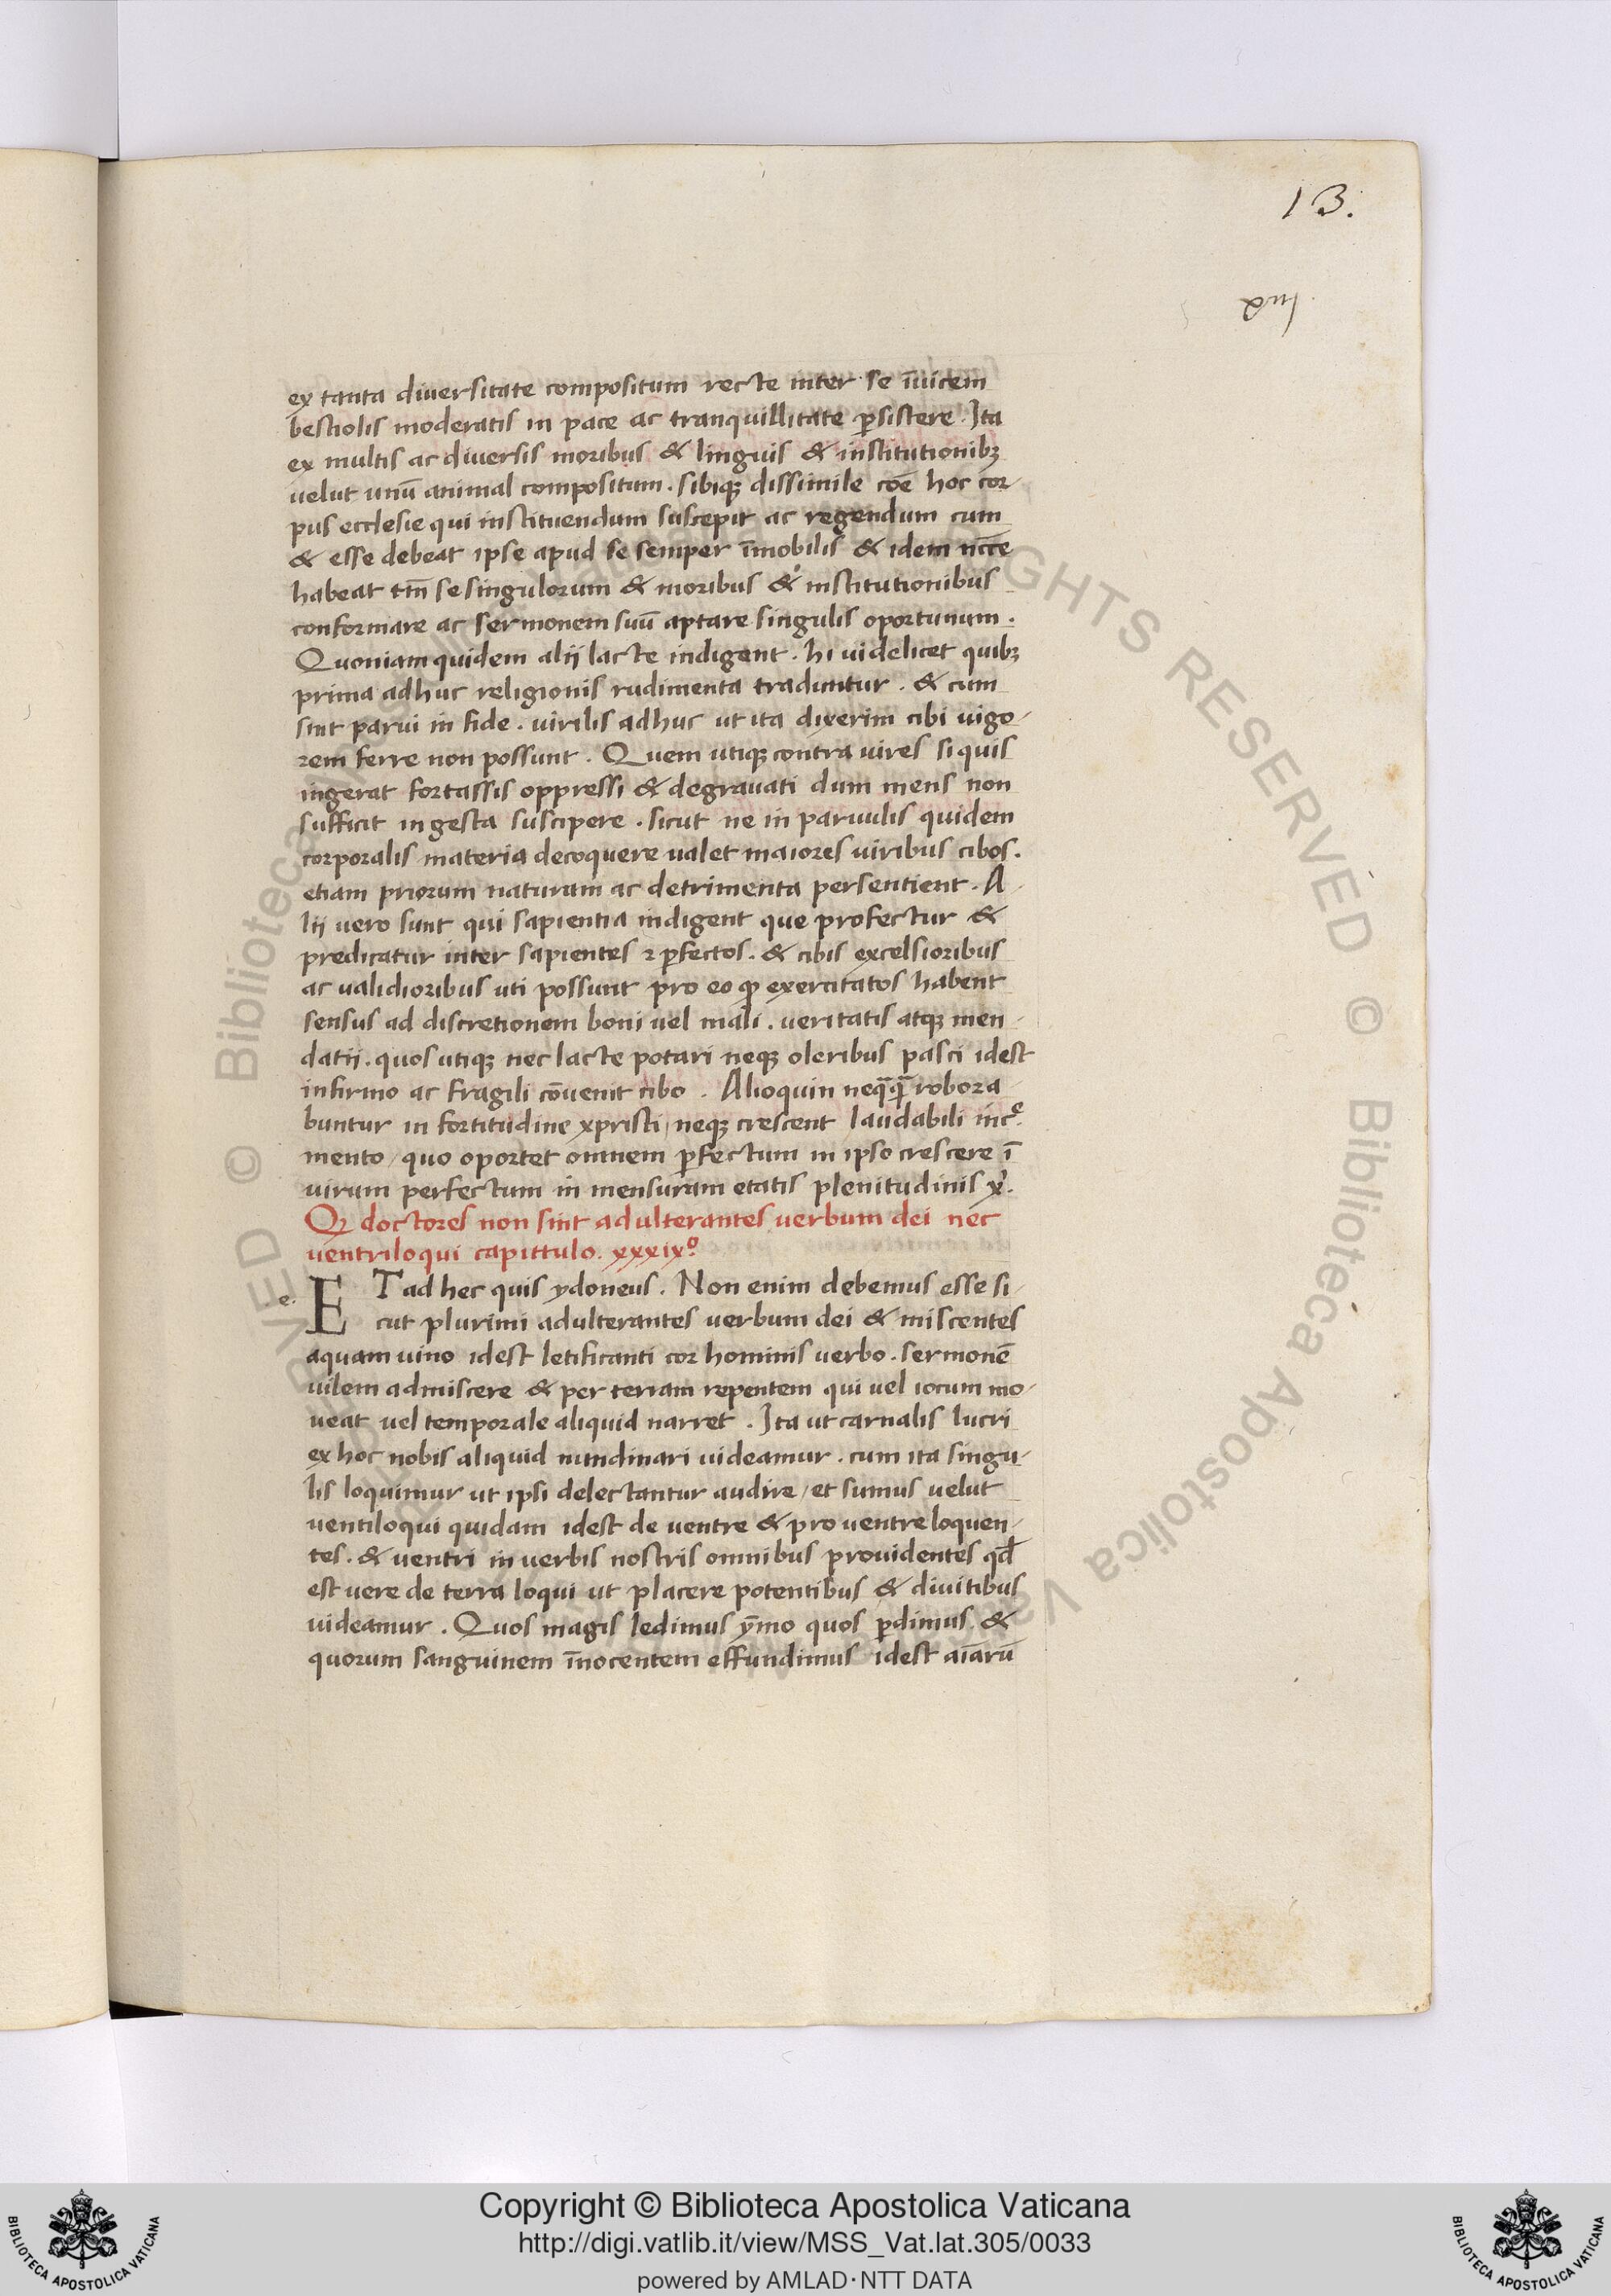 13.
ex tanta diuersitate compositum recte inter se īuicem
bestiolis moderatis in pace ac tranquillitate p̱sistere. Ita
ex multis ac diuersis moribus & linguis & institutionibꝫ
uelut unū animal compositum. sibiqꝫ dissimile cōe hoc cor-
pus ecclesie qui instituendum suscepit ac regendum cum
& esse debeat ipse apud se semper īmobilis & idem ncc̄e
habeat tm̄ se singulorum & moribus & institutionibus
conformare ac sermonem suū aptare singulis oportunum.
Quoniam quidem alij lacte indigent. hi uidelicet quibꝫ
prima adhuc religionis rudimenta traduntur. & cum
sint parui in fide. uirilis adhuc ut ita dixerim cibi uigo-
rem ferre non possunt. Quem utiqꝫ contra uires si quis
ingerat fortassis oppressi & degrauati dum mens non
sufficit ingesta suscipere. sicut ne in paruulis quidem
corporalis materia decoquere ualet maiores uiribus cibos.
etiam priorum naturam ac detrimenta persentient. A-
lij uero sunt qui sapientia indigent que profectur &
predicatur inter sapientes ⁊ ꝑfectos. & cibis excelsioribus
ac ualidioribus uti possunt pro eo ꝙ exercitatos habent
sensus ad discretionem boni uel mali. ueritatis atqꝫ men-
datij. quos utiqꝫ nec lacte potari neqꝫ oleribus pasci idest
infirmo ac fragili cōuenit cibo. Alioquin neq̄q̄ robora-
buntur in fortitudine xpristi, neqꝫ crescent laudabili incᵉ-
mento, quo oportet omnem ꝑfectum in ipso crescere ī
uirum perfectum in mensuram etatis plenitudinis xⁱ.
Qꝫ doctores non sint adulterantes uerbum dei nec
uentriloqui capittulo. xxxixº.
e.
ET ad hec quis ydoneus. Non enim debemus esse si-
cut plurimi adulterantes uerbum dei & miscentes
aquam uino idest letificanti cor hominis uerbo. sermonē
uilem admiscere & per terram repentem qui uel iocum mo-
ueat uel temporale aliquid narret. Ita ut carnalis lucri
ex hoc nobis aliquid nundinari uideamur. cum ita singu-
lis loquimur ut ipsi delectantur audire, et sumus uelut
uentiloqui quidam idest de uentre & pro uentre loquen-
tes. & uentri in uerbis nostris omnibus prouidentes qd̄
est uere de terra loqui ut placere potentibus & diuitibus
uideamur. Quos magis ledimus ȳmo quos ꝑdimus. &
quorum sanguinem īnocentem effundimus idest aīarū
Copyright © Biblioteca Apostolica Vaticana
http://digi.vatlib.it/view/MSS_Vat.lat.305/0033
powered by AMLAD·NTT DATA
BIBLIOTECA APOSTOLICA VATICANA
BIBLIOTECA APOSTOLICA VATICANA